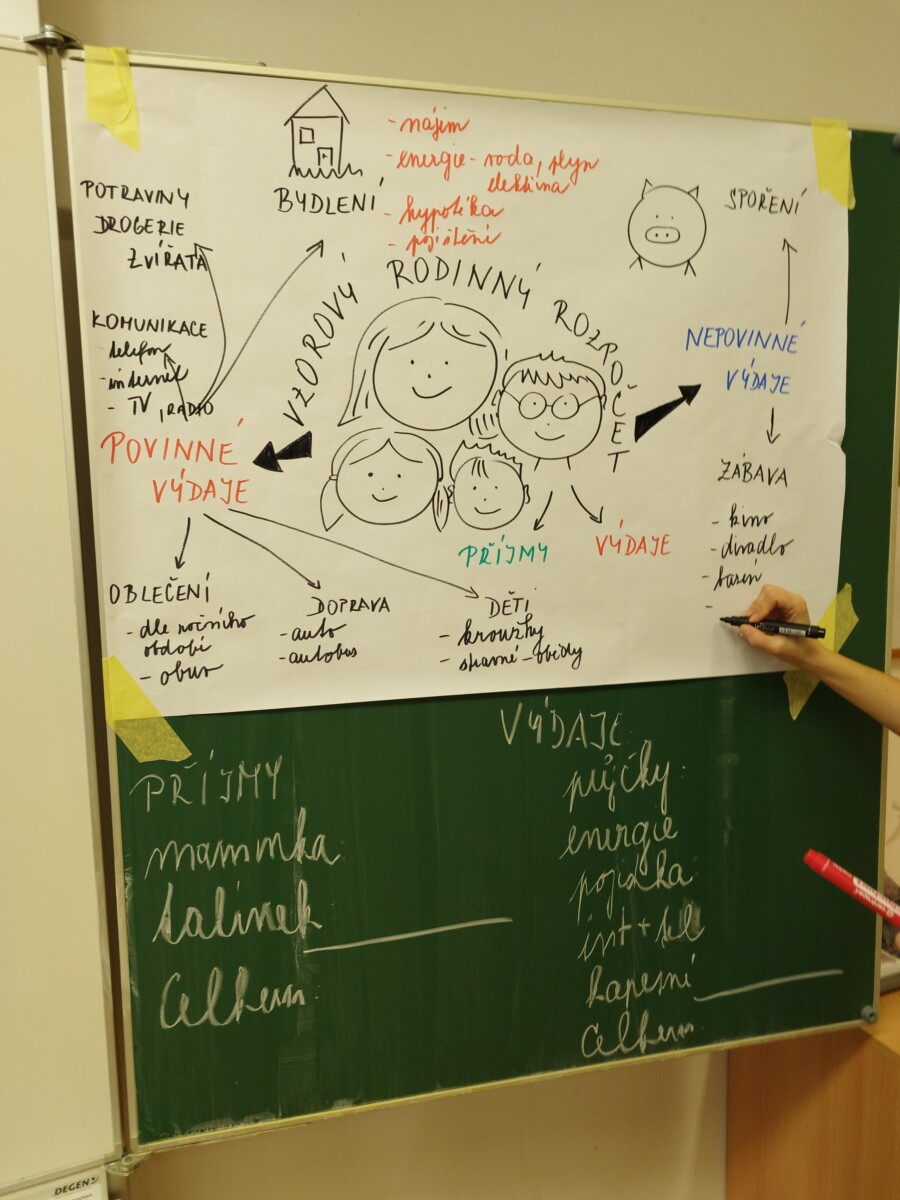 BYDLENÍ
- nájim
- energie - voda, plyn
elektřina
- hypotéka
- pojištění
POTRAVINY
DROGERIE
ZVÍŘATA
KOMUNIKACE
- telefon
- internet
- TV, RÁDIO
VZOROVÝ RODINNÝ ROZPOČET
SPOŘENÍ
NEPOVINNÉ
VÝDAJE
POVINNÉ
VÝDAJE
ZÁBAVA
- kino
- divadlo
- bazén
-
PŘÍJMY
VÝDAJE
OBLEČENÍ
- dle ročního
období
- obuv
DOPRAVA
- auto
- autobus
DĚTI
- kroužky
- stravné - obědy
PŘÍJMY
maminka
tatínek
Celkem
VÝDAJE
půjčky
energie
pojistka
int + tel
kapesní
Celkem
DEGEN